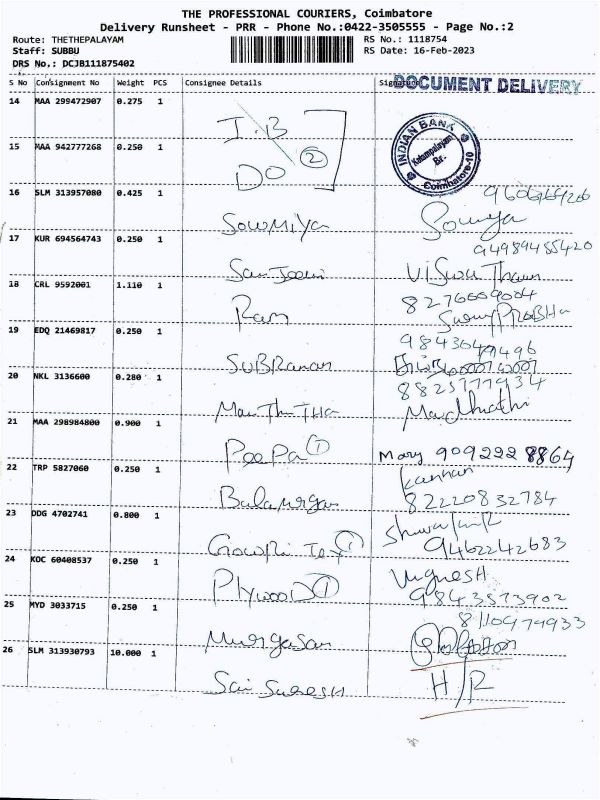 THE PROFESSIONAL COURIERS, Coimbatore
Delivery Runsheet - PRR - Phone No.:0422-3505555 - Page No.:2
Route: THETHEPALAYAM RS No.: 1118754
Staff: SUBBU RS Date: 16-Feb-2023
DRS No.: DCJB111875402
S No Consignment No Weight PCS Consignee Details Signature
DOCUMENT DELIVERY
14 MAA 299472907 0.275 1
I.B
INDIAN BANK
15 MAA 942777268 0.250 1
DO 2
Br.
Coimbatore-10
16 SLM 313957080 0.425 1
Sowmiya Sowmya
17 KUR 694564743 0.250 1 94989455420
Sanjeevi
18 CRL 9592001 1.110 1
Ram
19 EDQ 21469817 0.250 1
SUBRaman
20 NKL 3136600 0.280 1
21 MAA 298984800 0.900 1
PeePa 1 Mary 9092228864
22 TRP 5827060 0.250 1 Kannan
Balamurgan 82220832784
23 DDG 4702741 0.800 1
Gowri Tex 1 9462242683
24 KOC 60408537 0.250 1 Vignesh
Plywood 1 9843573902
25 MYD 3033715 0.250 1 8110479933
Murgasan
26 SLM 313930793 10.000 1
Sai Suresh H/R